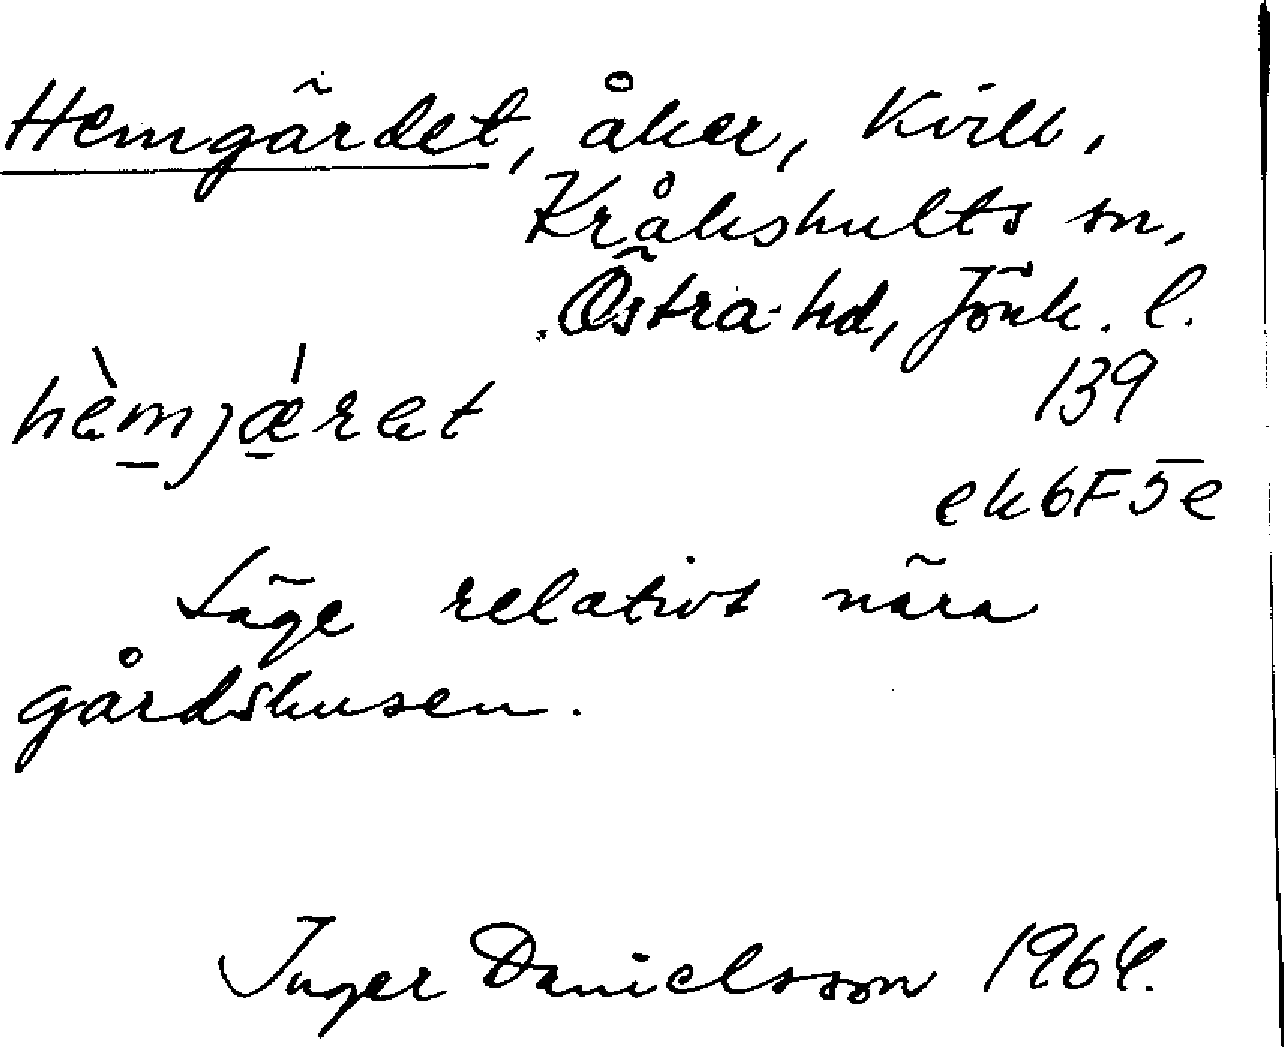 Hemgärdet, åker, Kvill,
Kråkshults sn,
Östra hd, Jönk. l.
hèmjǽret 139
ek 6F 5e
Läge relativt nära
gårdshusen.
Inger Danielsson 1964.